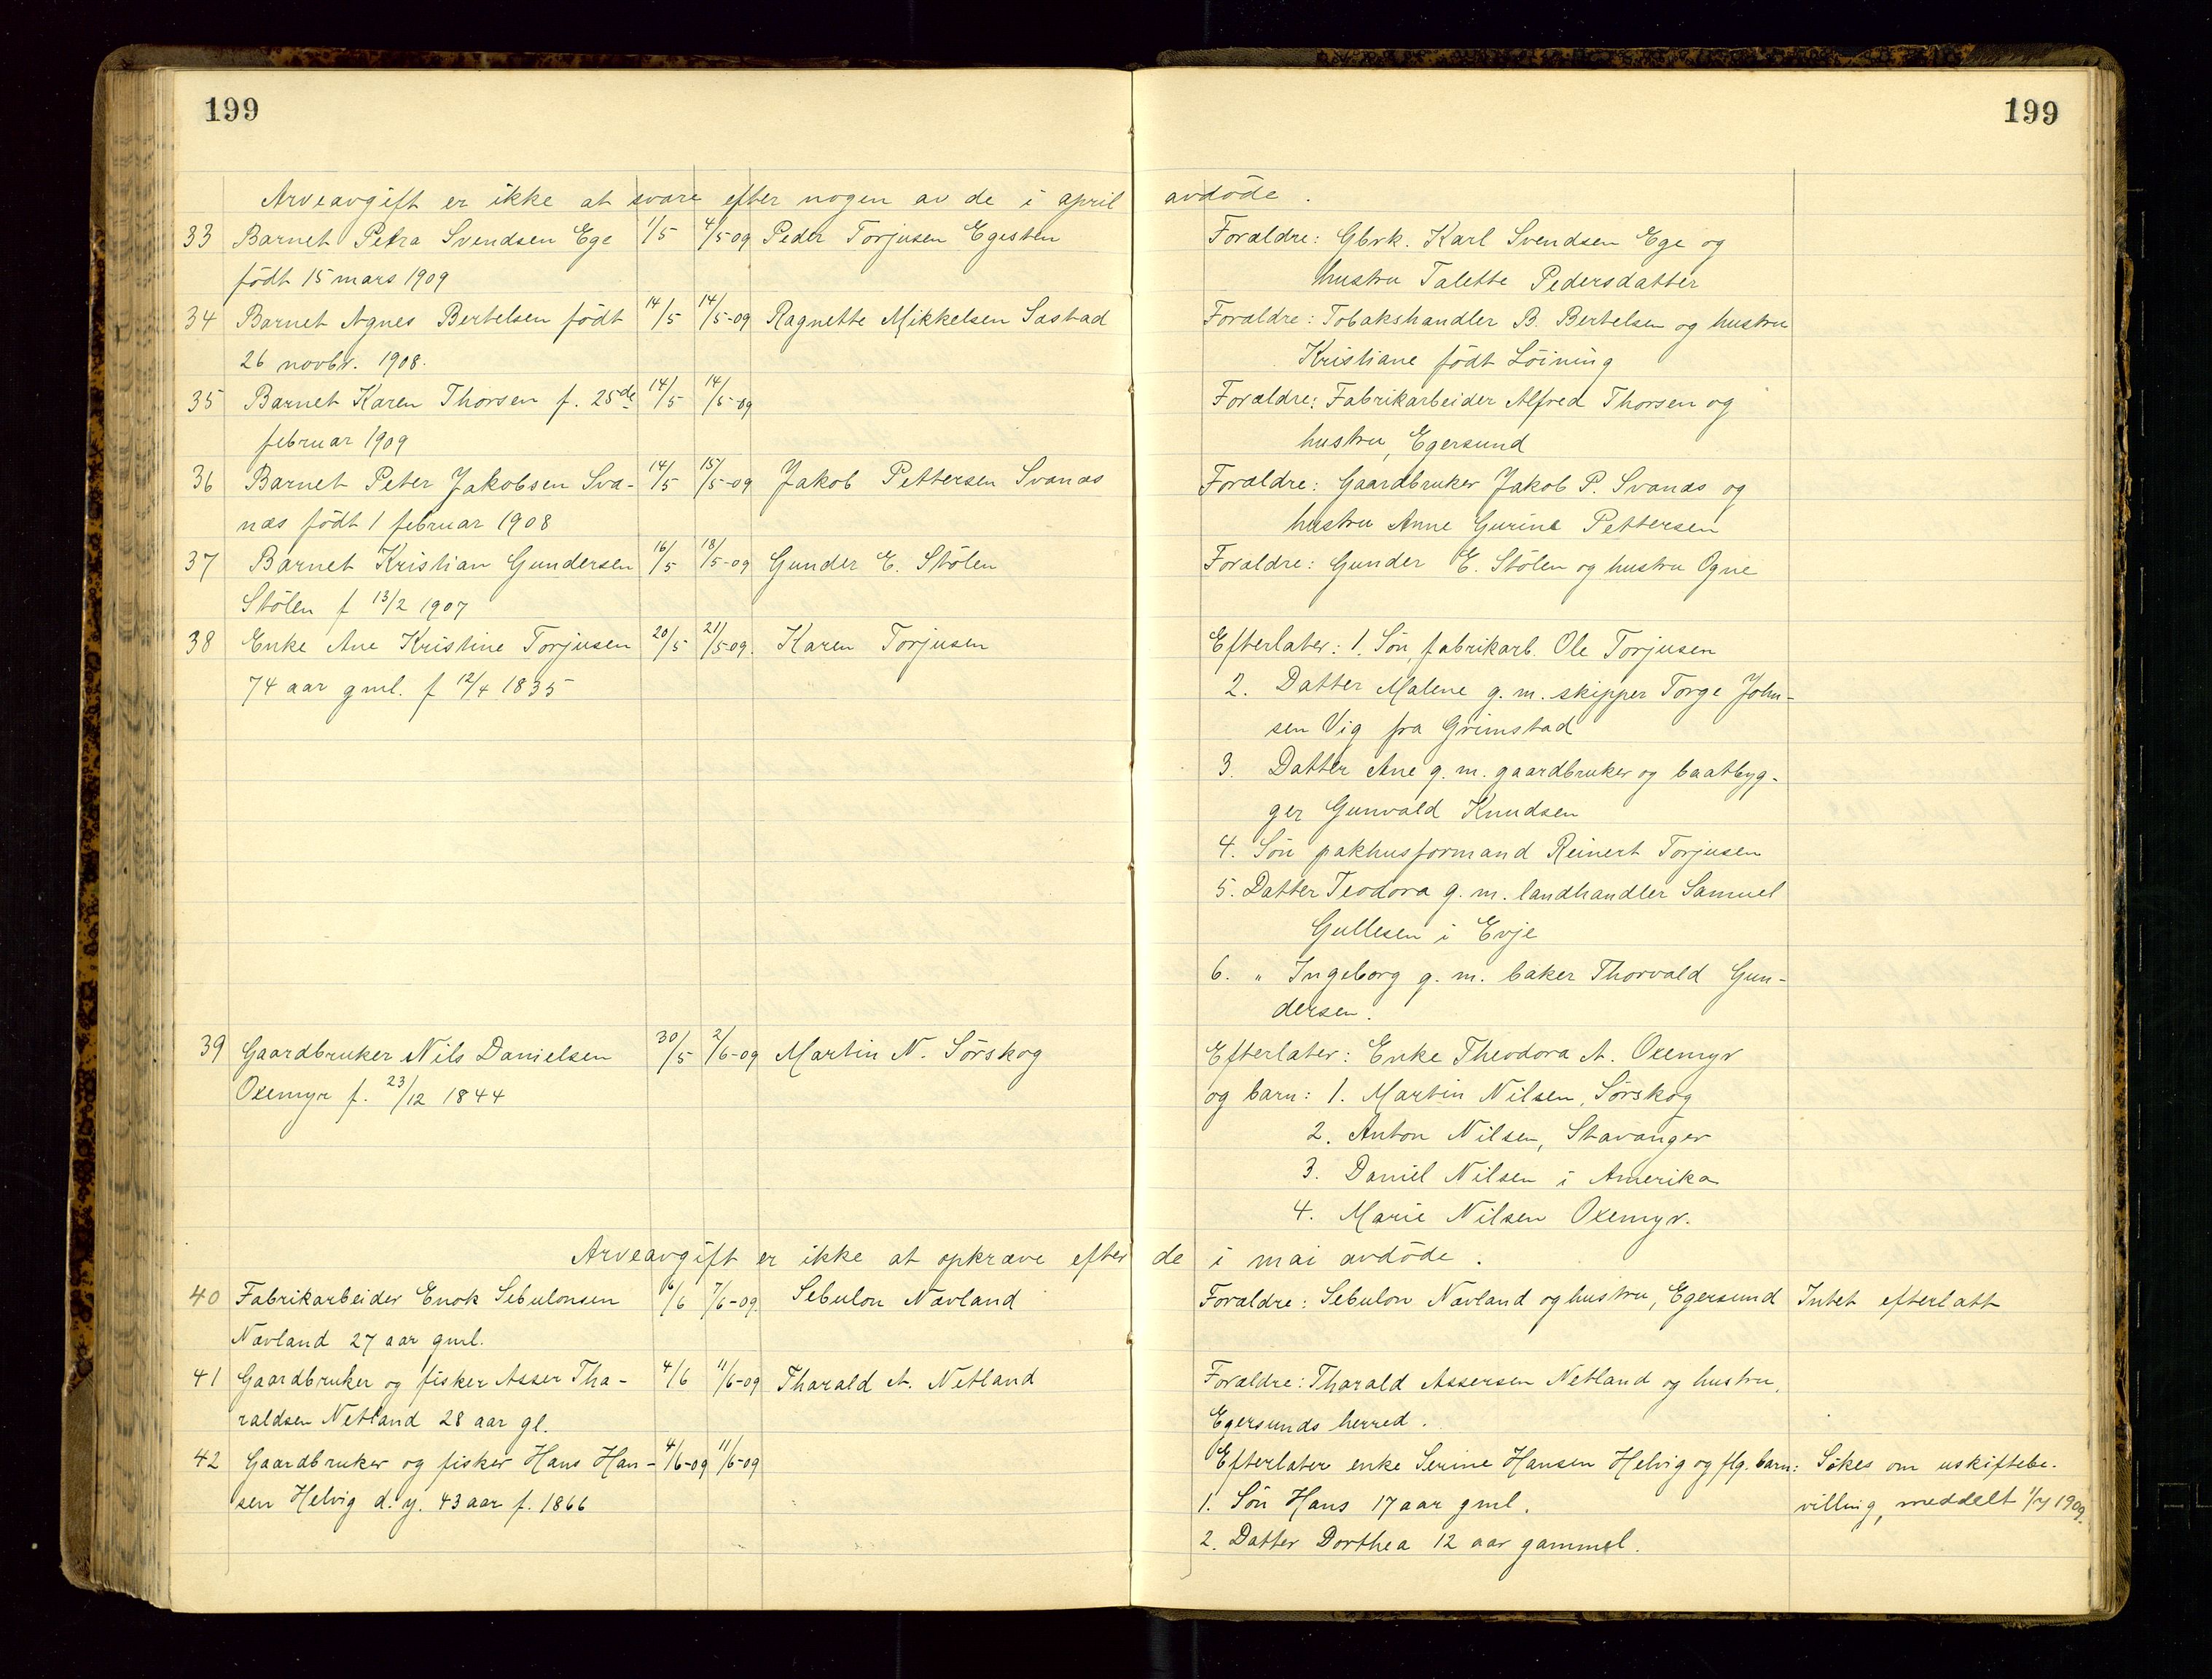 199
199
Arveavgift er ikke at svare efter nogen av de i april avdöde.
33 Barnet Petra Svendsen Ege 1/5 4/5-09 Peder Torjusen Egesten Forældre: Gbrk. Karl Svendsen Ege og
födt 15 mars 1909 hustru Talette Pedersdatter
34 Barnet Agnes Bertelsen födt 14/5 14/5-09 Ragnette Mikkelsen Sæstad Forældre: Tobakshandler B. Bertelsen og hustru
26 novbr. 1908. Kristiane födt Löining
35 Barnet Karen Thorsen f. 25de 14/5 14/5-09 Forældre: Fabrikarbeider Alfred Thorsen og
februar 1909 hustru, Egersund
36 Barnet Peter Jakobsen Sva- 14/5 15/5-09 Jakob Pettersen Svanæs Forældre: Gaardbruker Jakob P. Svanæs og
næs födt 1 februar 1908 hustru Anne Gurine Pettersen
37 Barnet Kristian Gundersen 16/5 18/5-09 Gunder E. Stölen Forældre: Gunder E. Stölen og hustru Ogne
Stölen f 13/2 1907
38 Enke Ane Kristine Torjusen 20/5 21/5-09. Karen Torjusen Efterlater: 1. Sön, fabrikarb. Ole Torjusen
74 aar gml. f 12/4 1835 2. Datter Malene g. m. skipper Torge John-
sen Vig fra Grimstad
3. Datter Ane g. m. gaardbruker og baatbyg-
ger Gunvald Knudsen
4. Sön pakhusformand Reinert Torjusen
5. Datter Teodora g. m. landhandler Samuel
Gullesen i Evje
6. " Ingeborg g. m. baker Thorvald Gun-
dersen.
39 Gaardbruker Nils Danielsen 30/5 2/6-09 Martin N. Sörskog Efterlater: Enke Theodora A. Oxemyr
Oxemyr f. 23/12 1844 og barn: 1. Martin Nilsen, Sörskog
2. Anton Nilsen, Stavanger
3. Daniel Nilsen i Amerika
4. Marie Nilsen Oxemyr.
Arveavgift er ikke at opkræve efter de i mai avdöde.
40 Fabrikarbeider Enok Sebulonsen 6/6 7/6-09. Sebulon Nævland Forældre: Sebulon Nævland og hustru, Egersund Intet efterlatt
Nævland 27 aar gml.
41 Gaardbruker og fisker Asser Tha- 4/6 11/6-09 Tharald A. Netland Forældre: Tharald Assersen Netland og hustru,
raldsen Netland 28 aar gl. Egersunds herred.
42 Gaardbruker og fisker Hans Han- 4/6-09 11/6-09 Efterlater enke Serine Hansen Helvig og flg. barn: Sökes om uskiftebe-
sen Helvig d. y. 43 aar f. 1866 1. Sön Hans 17 aar gml. villing, meddelt 1/7 1909.
2. Datter Dorthea 12 aar gammel.